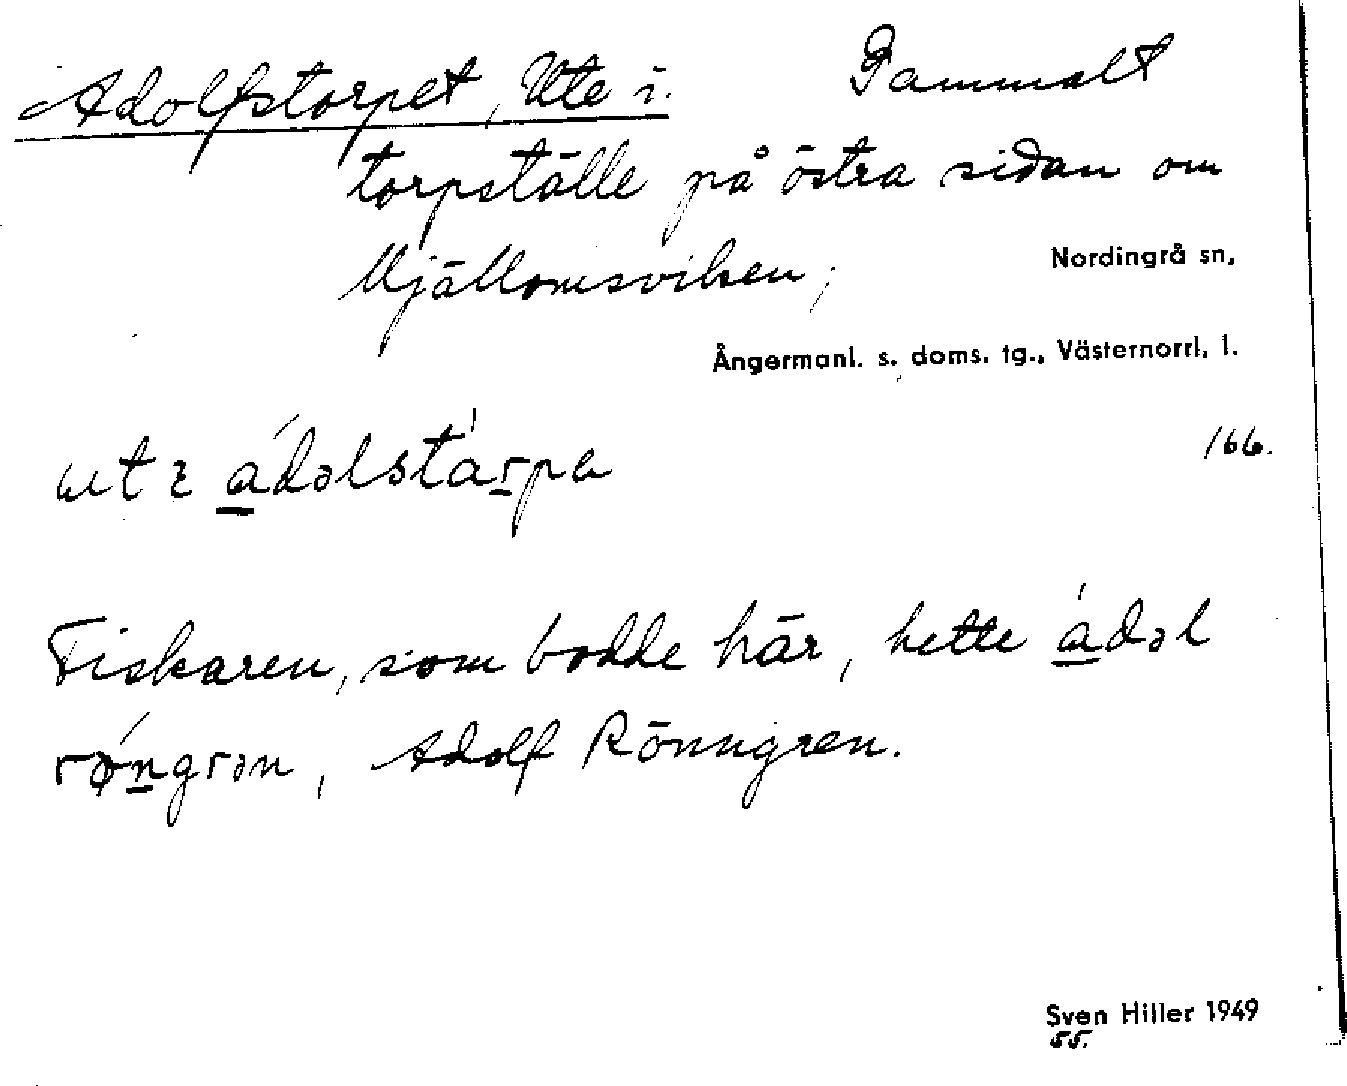 Adolfstorpet, Ute i. Gammalt
torpställe på östra sidan om
Mjällomsviken;
Nordingrå sn,
Ångermanl. s. doms. tg., Västernorrl. l.
166.
ut ɩ ádəlstàrpa
Fiskaren, som bodde här, hette ádəl
rǿngrən, Adolf Rönngren.
Sven Hiller 1949
55.